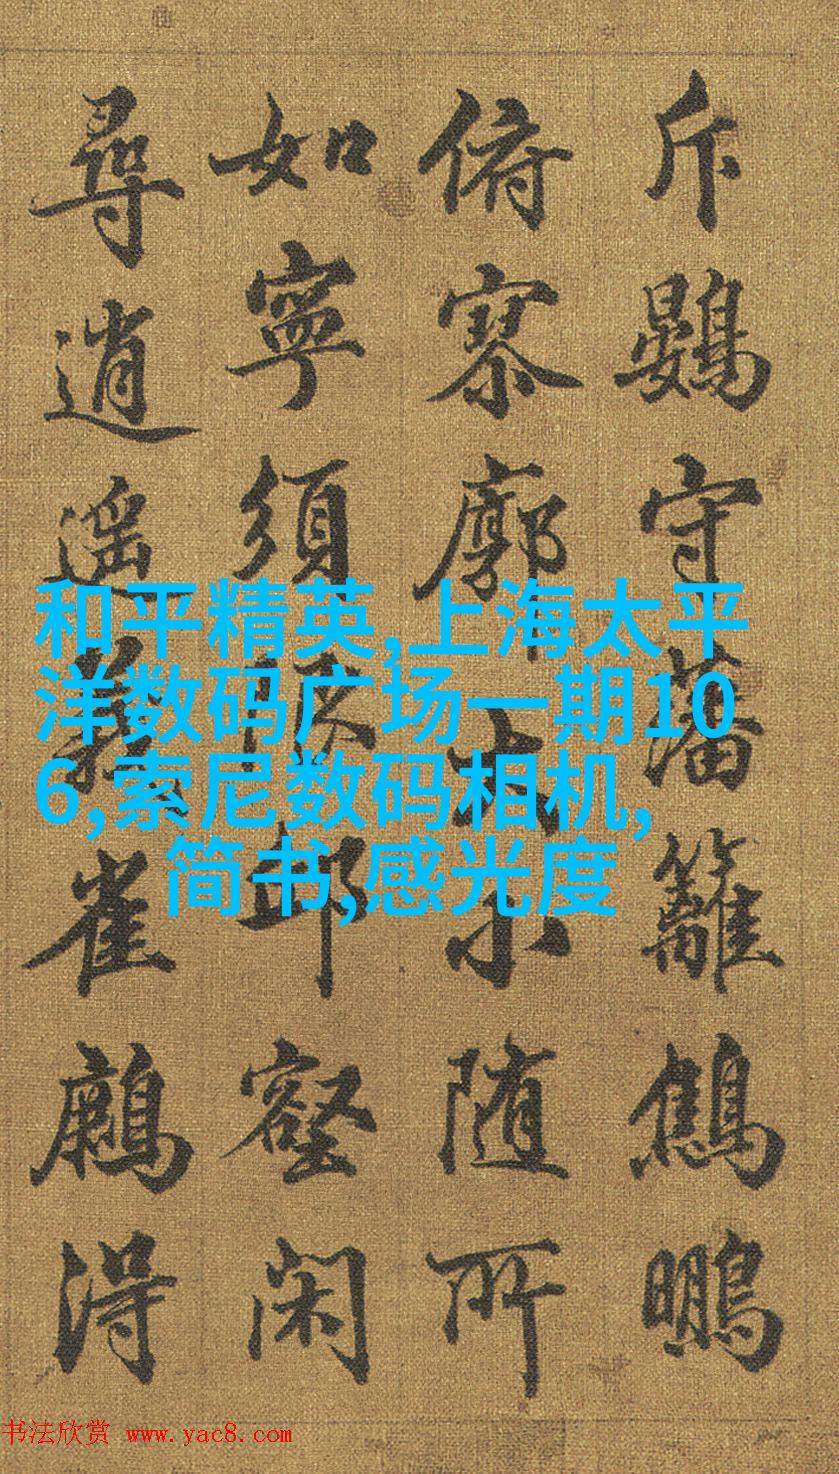 斥鷃守藩籬鷦鵬
俯寥廓大小随所
如寧須限邱壑閑
尋逍遥雀得
和平精英,上海太平
洋数码广场一期10
6,索尼数码相机,
简书,感光度
书法欣赏 www.yac8.com